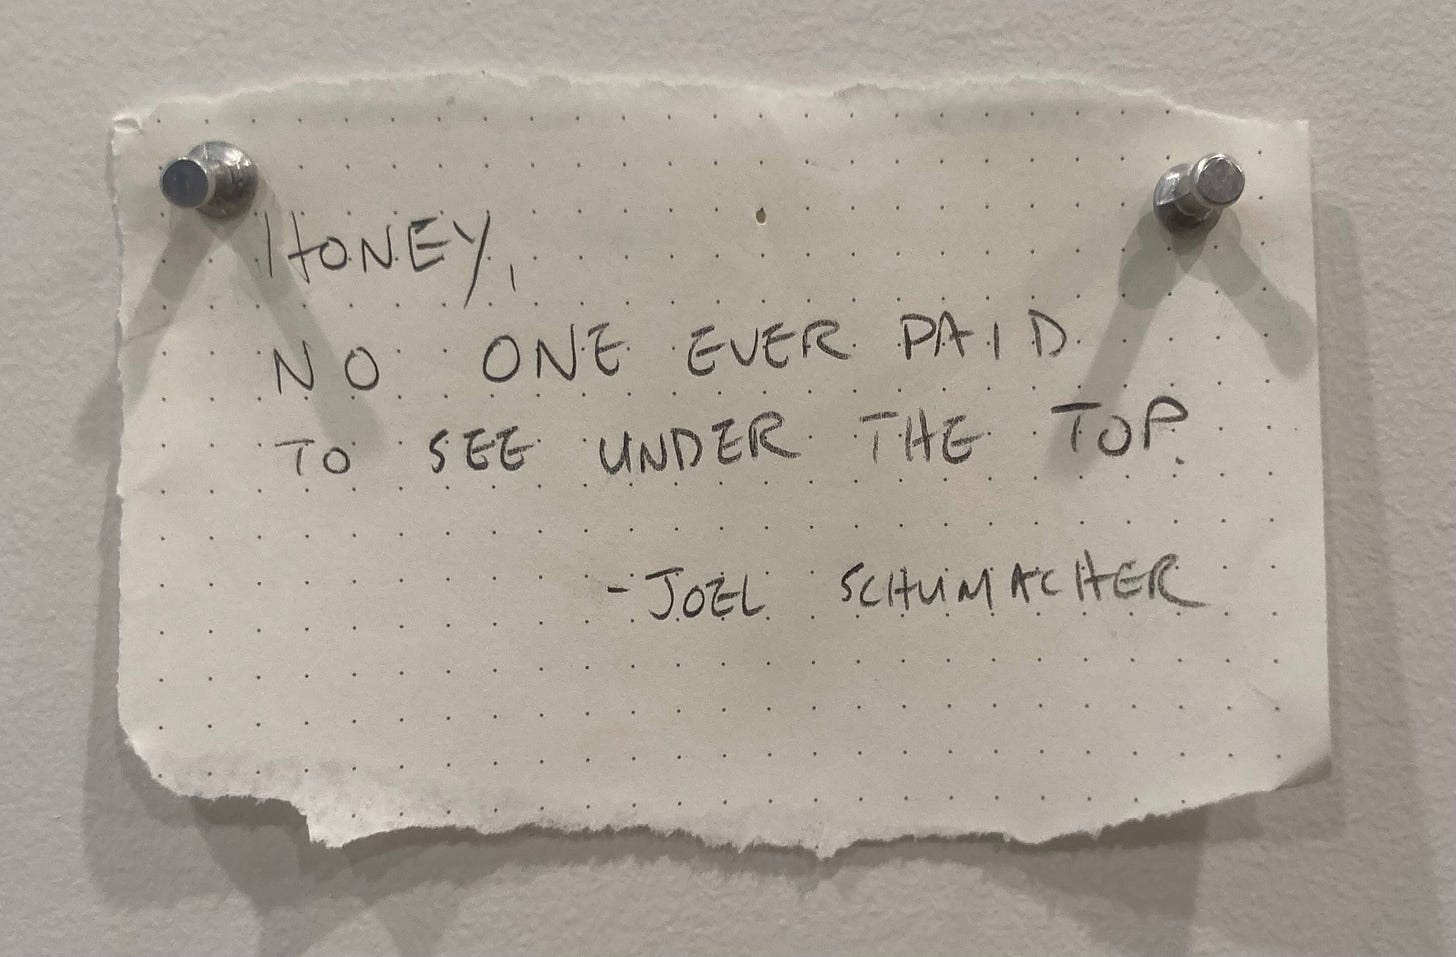 HONEY,
NO ONE EVER PAID
TO SEE UNDER THE TOP.
-JOEL SCHUMACHER